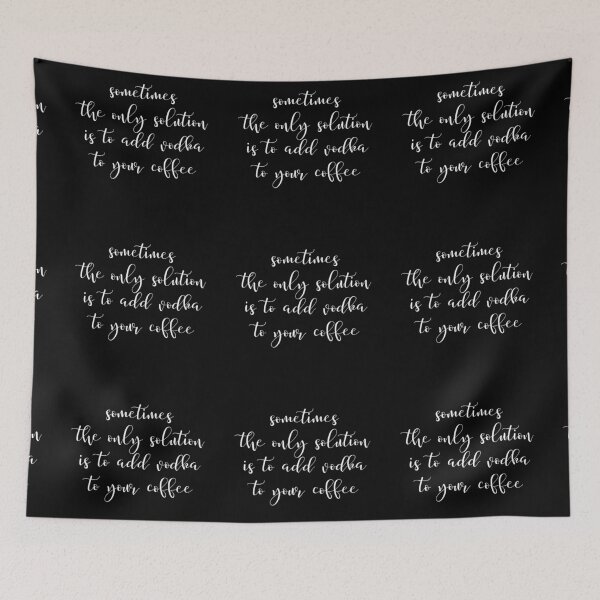 sometimes
the only solution
is to add vodka
to your coffee
sometimes
the only solution
is to add vodka
to your coffee
sometimes
the only solution
is to add vodka
to your coffee
sometimes
the only solution
is to add vodka
to your coffee
sometimes
the only solution
is to add vodka
to your coffee
sometimes
the only solution
is to add vodka
to your coffee
sometimes
the only solution
is to add vodka
to your coffee
sometimes
the only solution
is to add vodka
to your coffee
sometimes
the only solution
is to add vodka
to your coffee